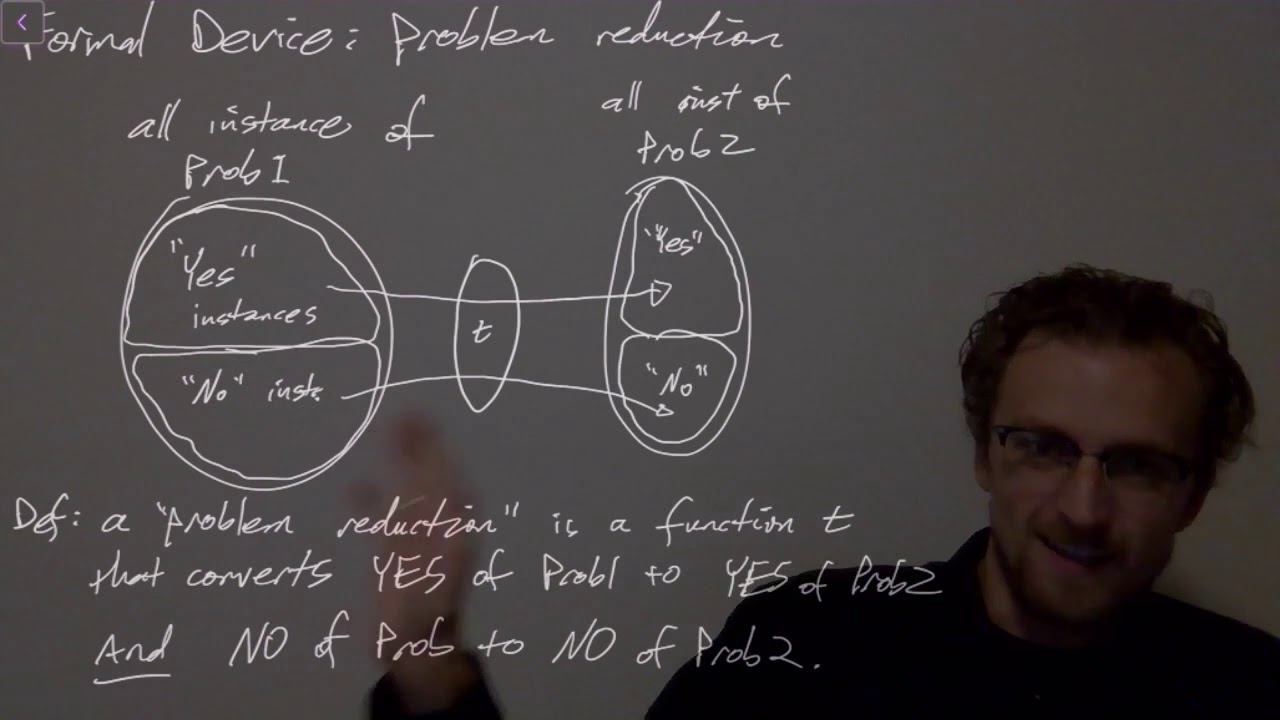 Formal Device: Problem reduction
all instance of
Prob 1
all inst of
Prob 2
"Yes"
instances
"Yes"
t
"No" inst.
"No"
Def: a "problem reduction" is a function t
that converts YES of Prob1 to YES of Prob2
And NO of Prob to NO of Prob2.